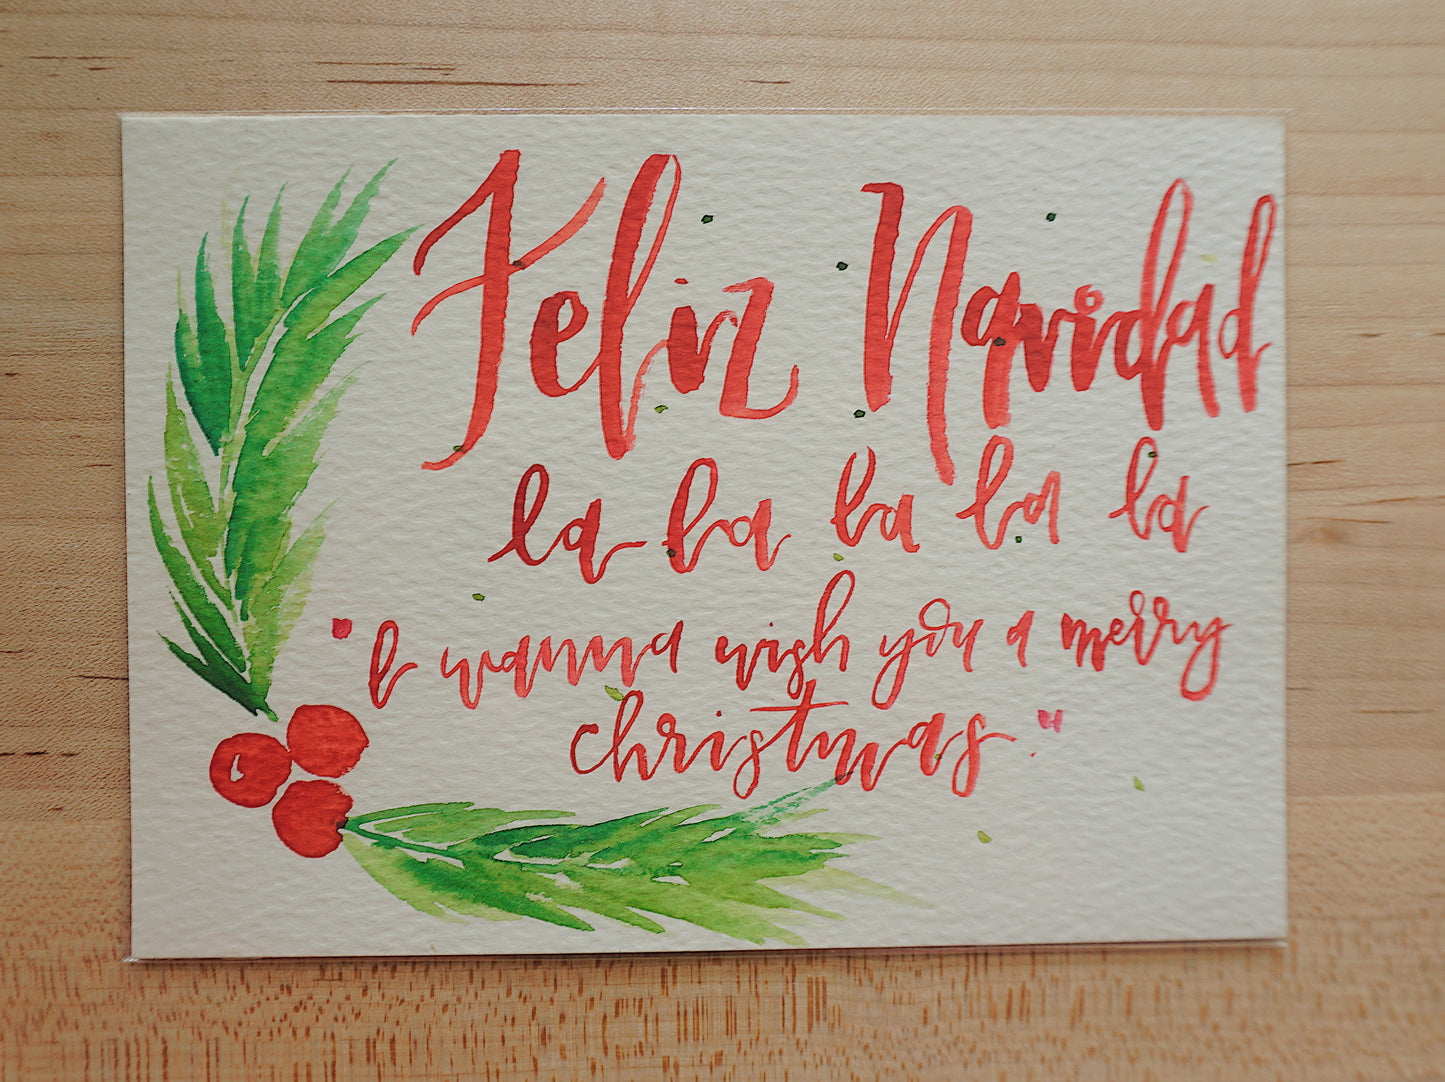 Feliz Navidad
la la la la la
"I wanna wish you a merry
christmas."